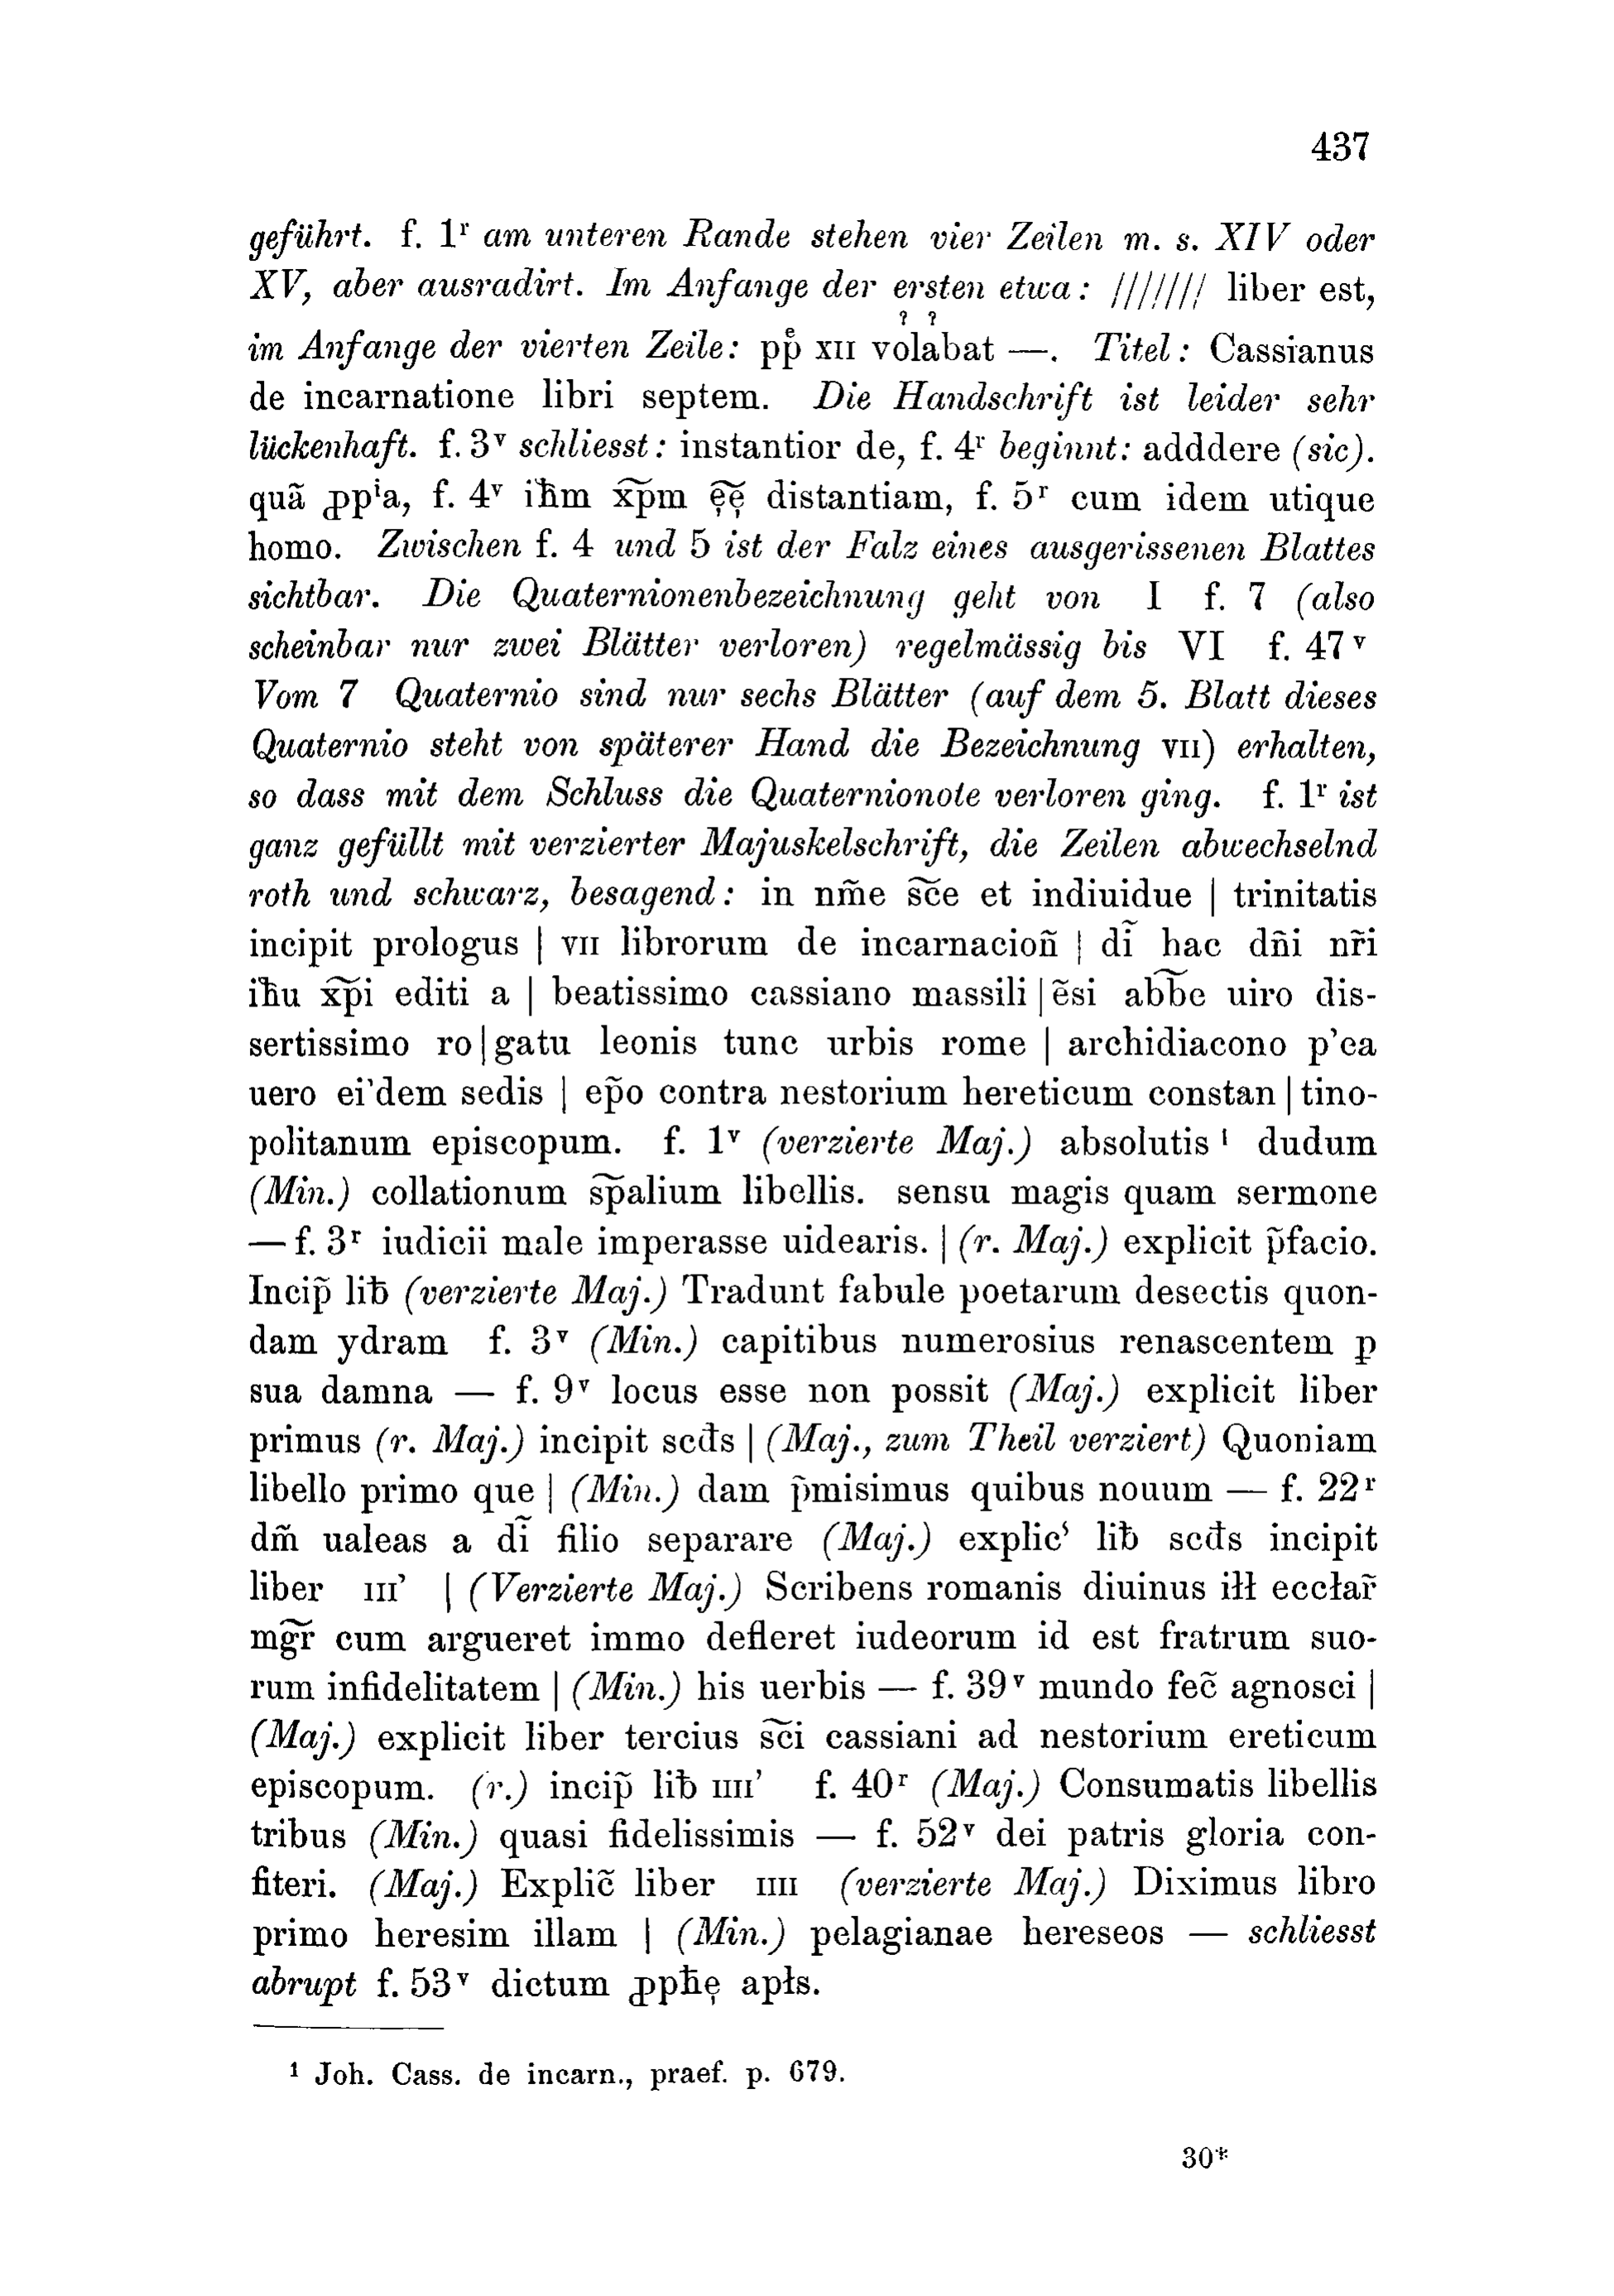 437
geführt. f. 1ʳ am unteren Rande stehen vier Zeilen m. s. XIV oder
XV, aber ausradirt. Im Anfange der ersten etwa: //////// liber est,
im Anfange der vierten Zeile: pp̊ XII volabat —. Titel: Cassianus
de incarnatione libri septem. Die Handschrift ist leider sehr
lückenhaft. f. 3ᵛ schliesst: instantior de, f. 4ʳ beginnt: adddere (sic).
quā ꝓpⁱa, f. 4ᵛ iħm x͞pm ę̃ę̃ distantiam, f. 5ʳ cum idem utique
homo. Zwischen f. 4 und 5 ist der Falz eines ausgerissenen Blattes
sichtbar. Die Quaternionenbezeichnung geht von I f. 7 (also
scheinbar nur zwei Blätter verloren) regelmässig bis VI f. 47ᵛ
Vom 7 Quaternio sind nur sechs Blätter (auf dem 5. Blatt dieses
Quaternio steht von späterer Hand die Bezeichnung VII) erhalten,
so dass mit dem Schluss die Quaternionote verloren ging. f. 1ʳ ist
ganz gefüllt mit verzierter Majuskelschrift, die Zeilen abwechselnd
roth und schwarz, besagend: in nm̃e sc̃e et indiuidue | trinitatis
incipit prologus | VII librorum de incarnacioñ | dĩ hac dñi nr̃i
iħu xp̃i editi a | beatissimo cassiano massili|ẽsi abb̃e uiro dis-
sertissimo ro|gatu leonis tunc urbis rome | archidiacono p'ea
uero ei'dem sedis | ep̃o contra nestorium hereticum constan|tino-
politanum episcopum. f. 1ᵛ (verzierte Maj.) absolutis ¹ dudum
(Min.) collationum sp̃alium libellis. sensu magis quam sermone
— f. 3ʳ iudicii male imperasse uidearis. | (r. Maj.) explicit p̃facio.
Incip̃ lib̵ (verzierte Maj.) Tradunt fabule poetarum desectis quon-
dam ydram f. 3ᵛ (Min.) capitibus numerosius renascentem ꝑ
sua damna — f. 9ᵛ locus esse non possit (Maj.) explicit liber
primus (r. Maj.) incipit scđs | (Maj., zum Theil verziert) Quoniam
libello primo que | (Min.) dam p̃misimus quibus nouum — f. 22ʳ
dm̃ ualeas a dĩ filio separare (Maj.) explicˢ lib̵ scđs incipit
liber III' | (Verzierte Maj.) Scribens romanis diuinus iłł eccłar̃
mg̃r cum argueret immo defleret iudeorum id est fratrum suo-
rum infidelitatem | (Min.) his uerbis — f. 39ᵛ mundo fec̃ agnosci |
(Maj.) explicit liber tercius sc̃i cassiani ad nestorium ereticum
episcopum. (r.) incip̃ lib̵ IIII' f. 40ʳ (Maj.) Consumatis libellis
tribus (Min.) quasi fidelissimis — f. 52ᵛ dei patris gloria con-
fiteri. (Maj.) Explic̃ liber IIII (verzierte Maj.) Diximus libro
primo heresim illam | (Min.) pelagianae hereseos — schliesst
abrupt f. 53ᵛ dictum ꝓpħę apłs.
¹ Joh. Cass. de incarn., praef. p. 679.
30*